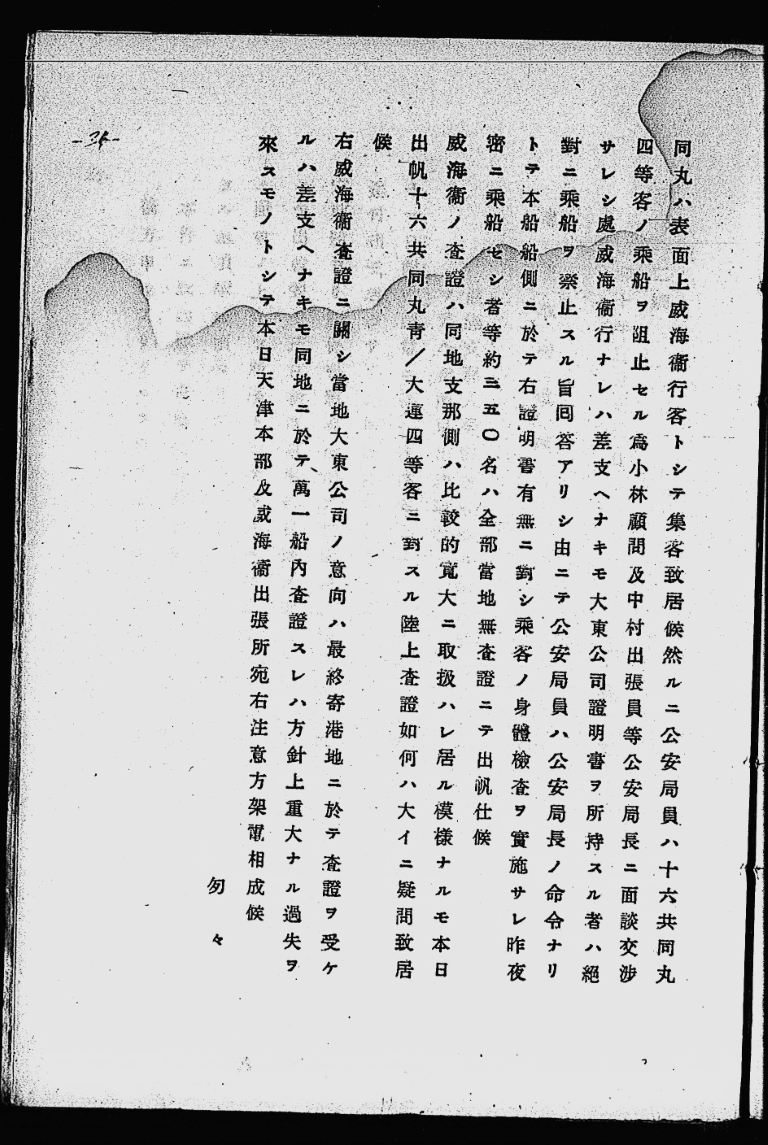 同丸ハ表面上威海衞行客トシテ集客致居候然ルニ公安局員ハ十六共同丸
四等客ノ乘船ヲ阻止セル爲小林顧問及中村出張員等公安局長ニ面談交渉
サレシ處威海衞行ナレハ差支ヘナキモ大東公司證明書ヲ所持スル者ハ絕
對ニ乘船ヲ禁止スル旨囘答アリシ由ニテ公安局員ハ公安局長ノ命令ナリ
トテ本船船側ニ於テ右證明書有無ニ對シ乘客ノ身體檢査ヲ實施サレ昨夜
密ニ乘船セシ者等約二五〇名ハ全部當地無査證ニテ出帆仕候
威海衞ノ査證ハ同地支那側ハ比較的寬大ニ取扱ハレ居ル模樣ナルモ本日
出帆十六共同丸靑/大連四等客ニ對スル陸上査證如何ハ大イニ疑問致居
候
右威海衞査證ニ關シ當地大東公司ノ意向ハ最終寄港地ニ於テ査證ヲ受ケ
ルハ差支ヘナキモ同地ニ於テ、萬一船內査證スレハ方針上重大ナル過失ヲ
來スモノトシテ本日天津本部及威海衞出張所宛右注意方架電相成候
匆々